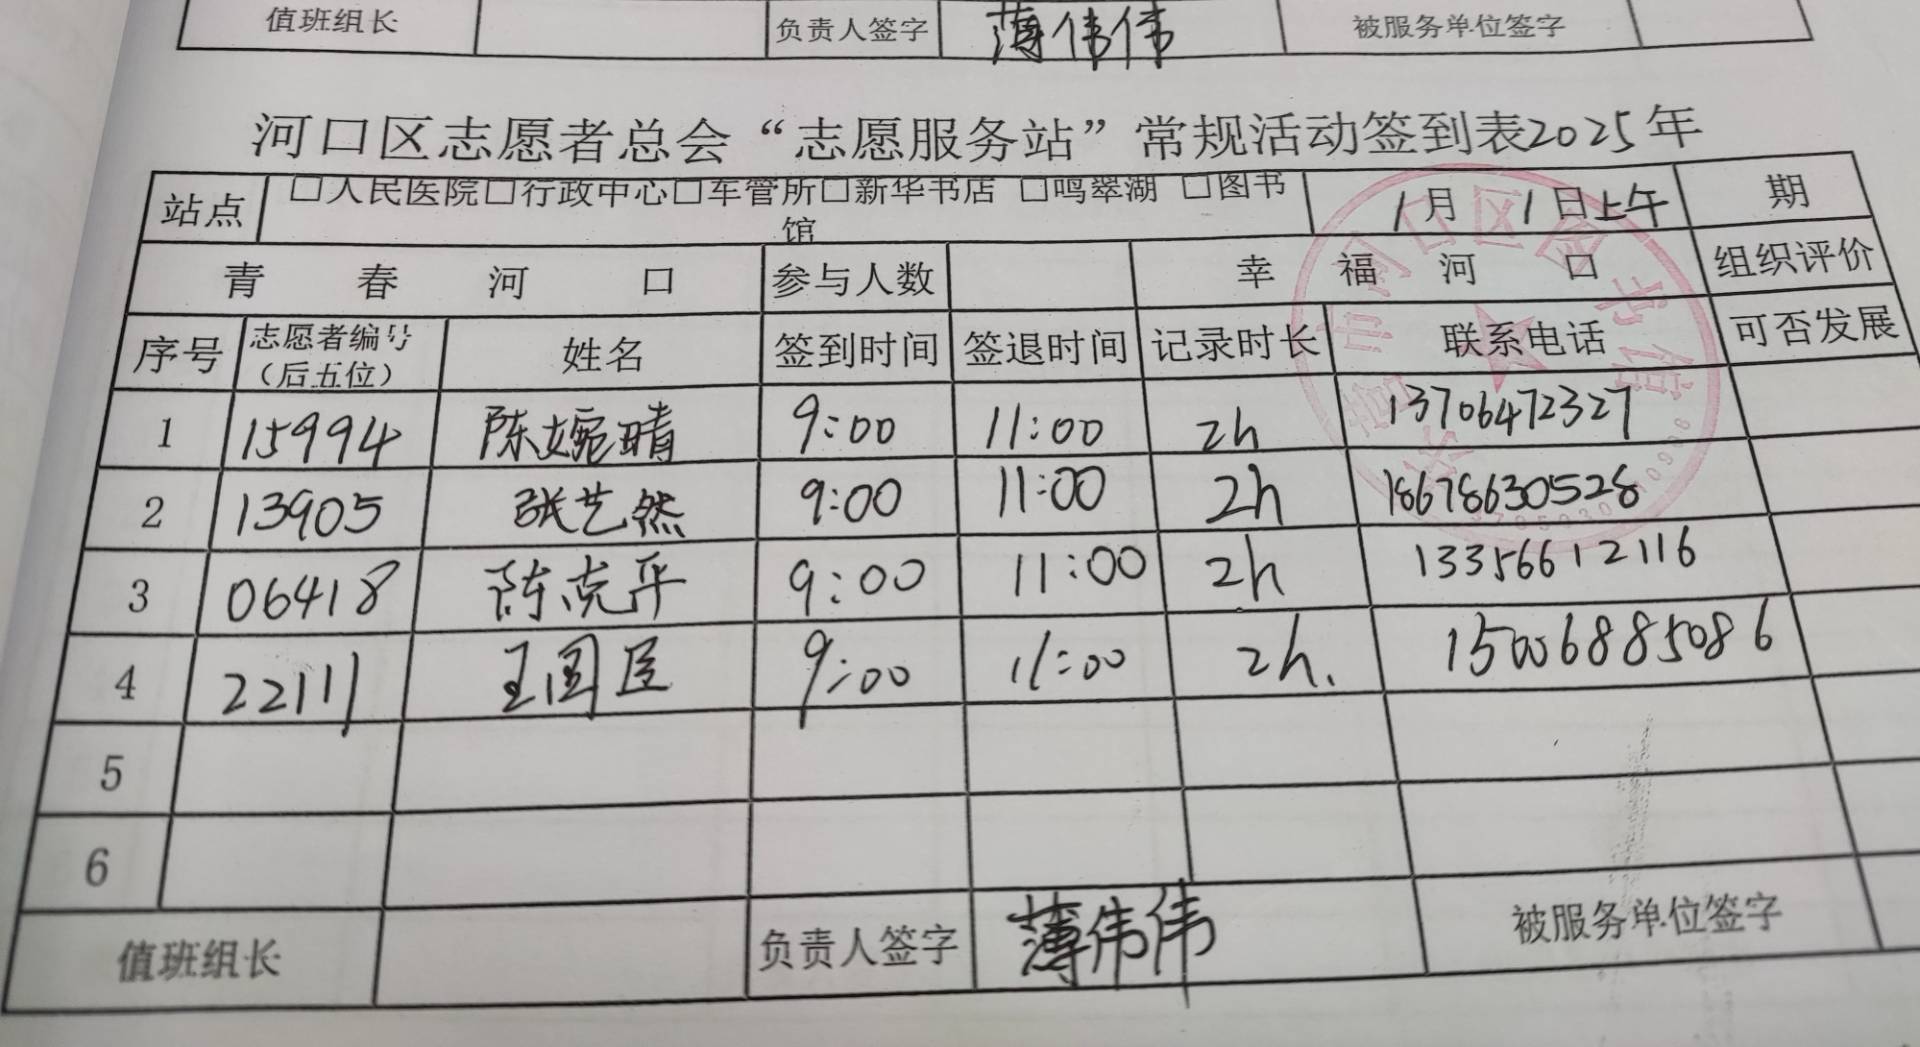 值班组长 负责人签字 薄伟伟 被服务单位签字
河口区志愿者总会“志愿服务站”常规活动签到表2025年
站点 □人民医院□行政中心□车管所□新华书店 □鸣翠湖 □图书馆 1月 1日上午 期
青春河口 参与人数 幸福河口 组织评价
序号 志愿者编号（后五位） 姓名 签到时间 签退时间 记录时长 联系电话 可否发展
1 15994 陈婉晴 9:00 11:00 2h 13706472327
2 13905 张艺然 9:00 11:00 2h 18678630528
3 06418 陈克平 9:00 11:00 2h 13356612116
4 22111 王国臣 9:00 11:00 2h. 15006885086
5
6
值班组长 负责人签字 薄伟伟 被服务单位签字
东营市河口区图书馆